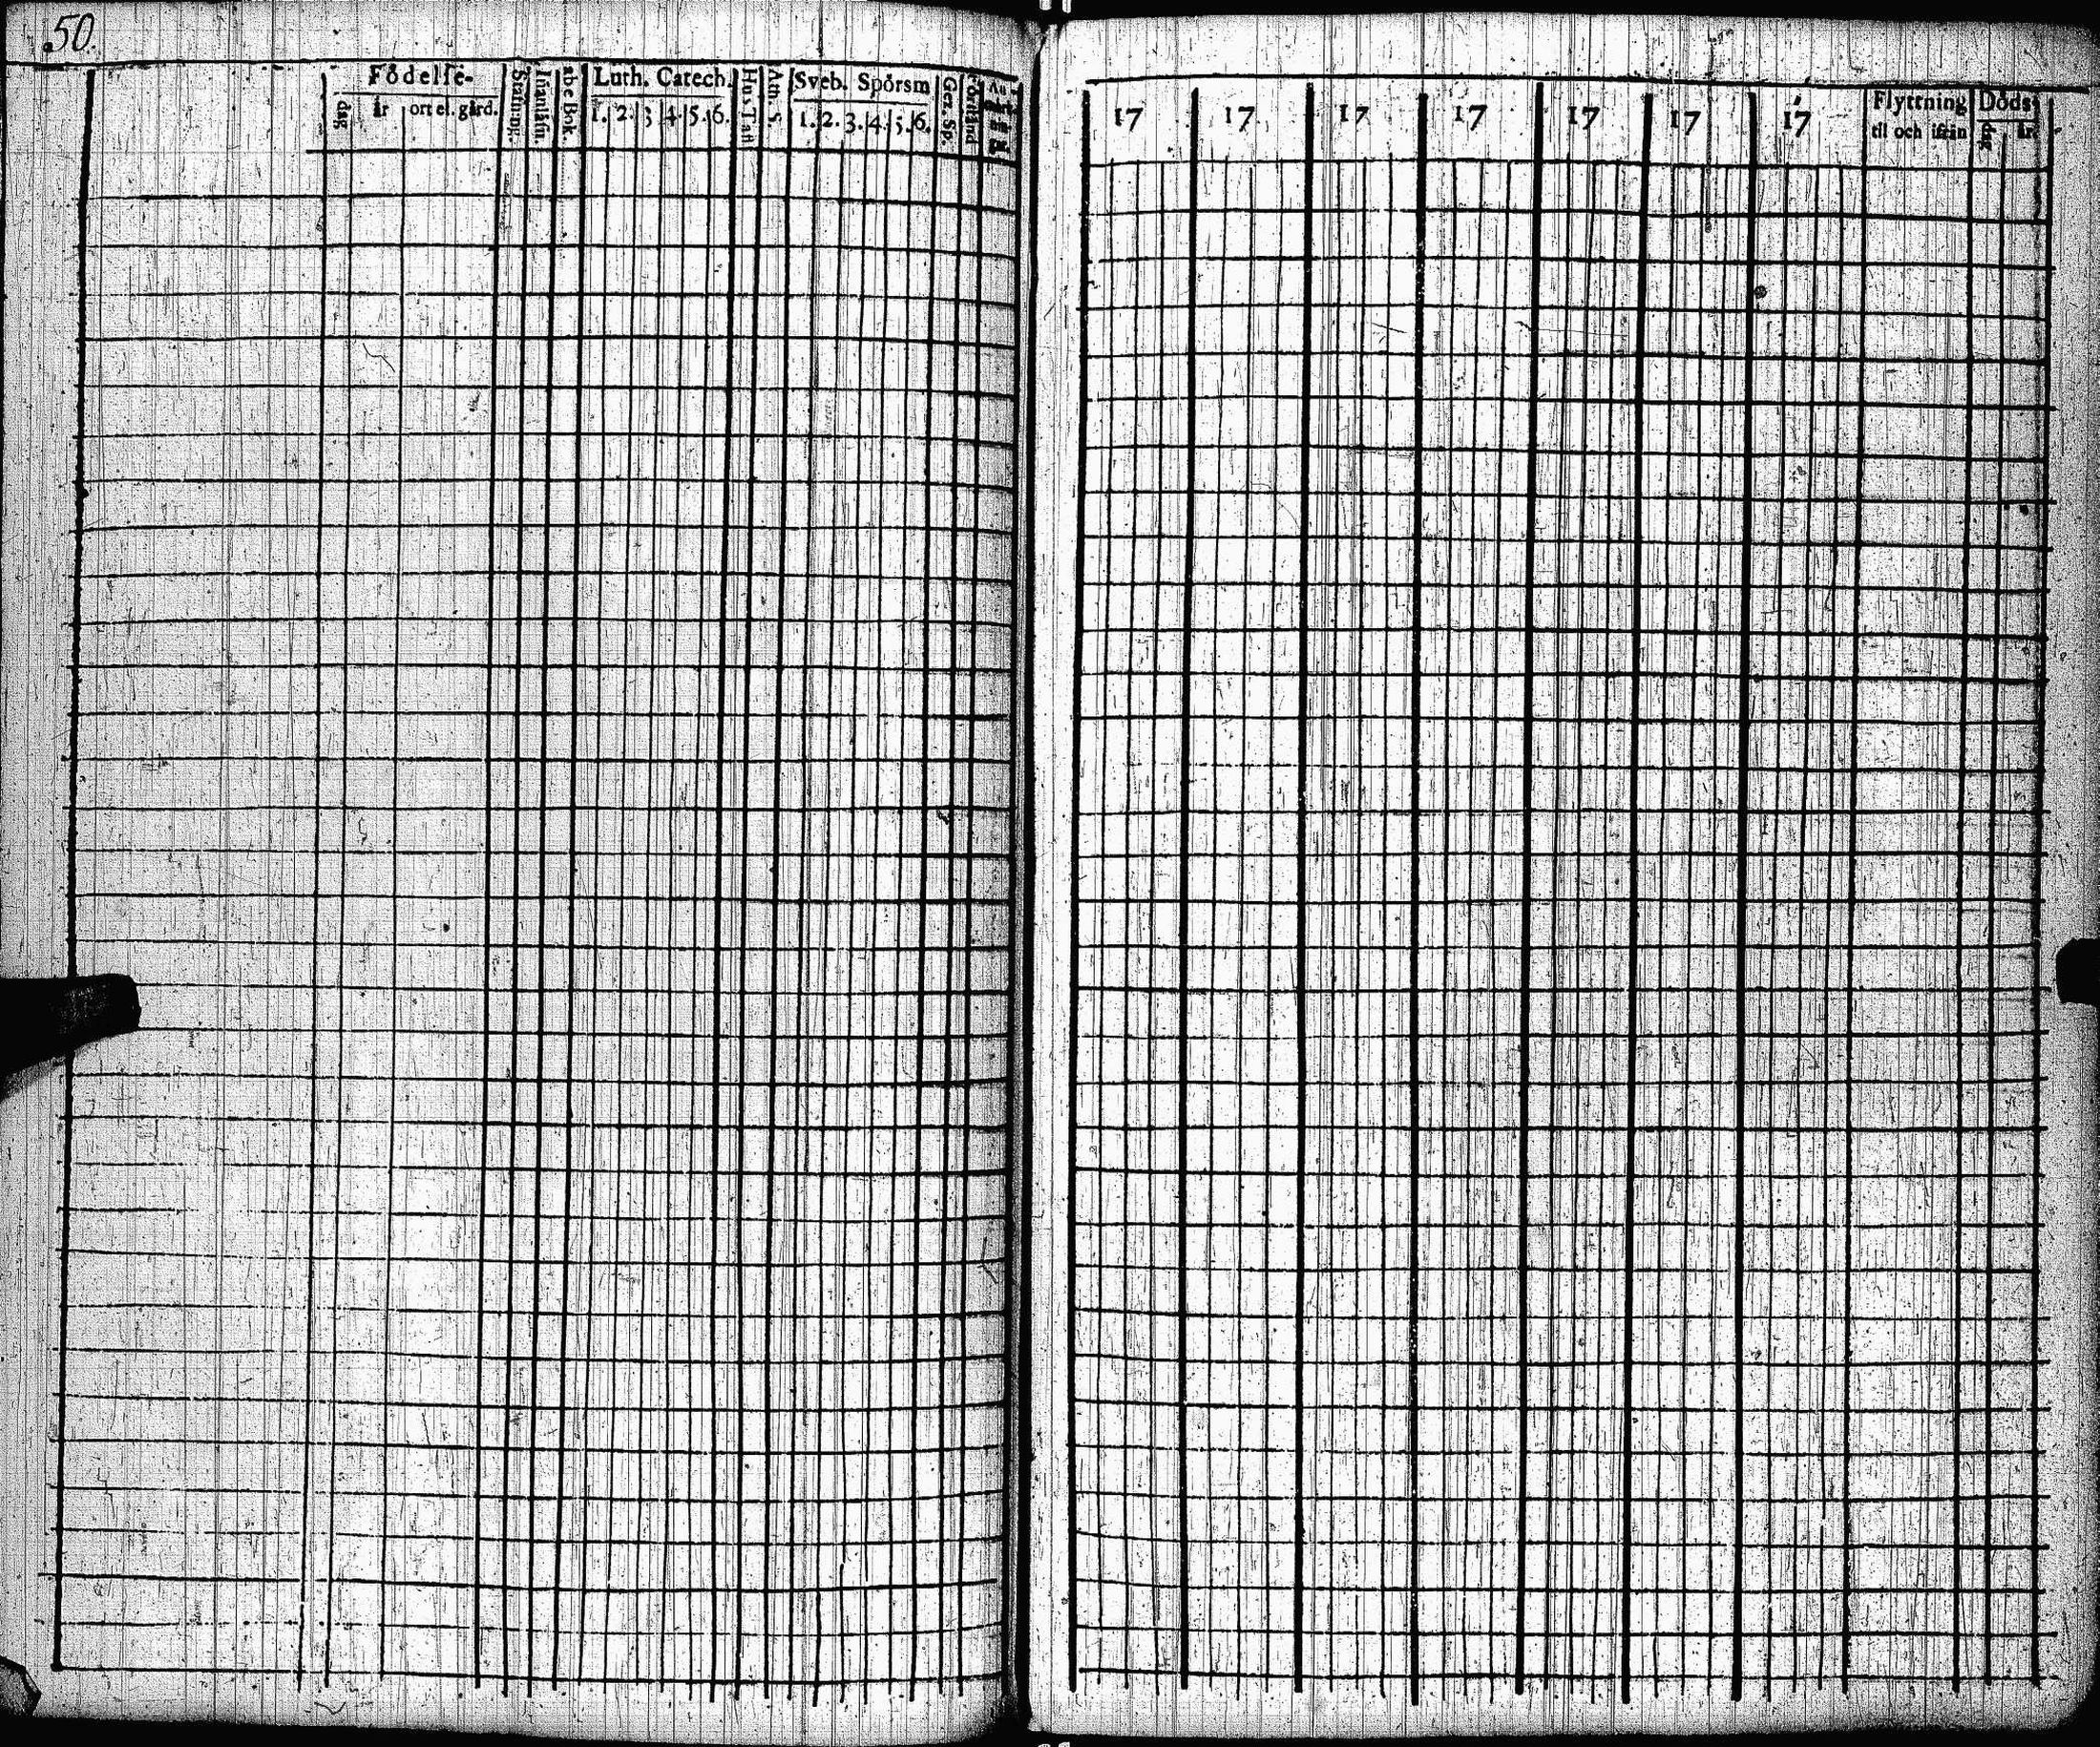 50.
Födelse-
dag
år
ort el. gård.
Stafning.
abc Bok.
Luth. Catech.
1. 2. 3 4. 5. 6.
Hus Tafl
Ath. S.
Sveb. Spörsm
1. 2. 3. 4. 5. 6.
Ger. Sp.
Förstånd
17 17 17 17 17 17 17
Flyttning
til och ifrån
Döds-
dag
år